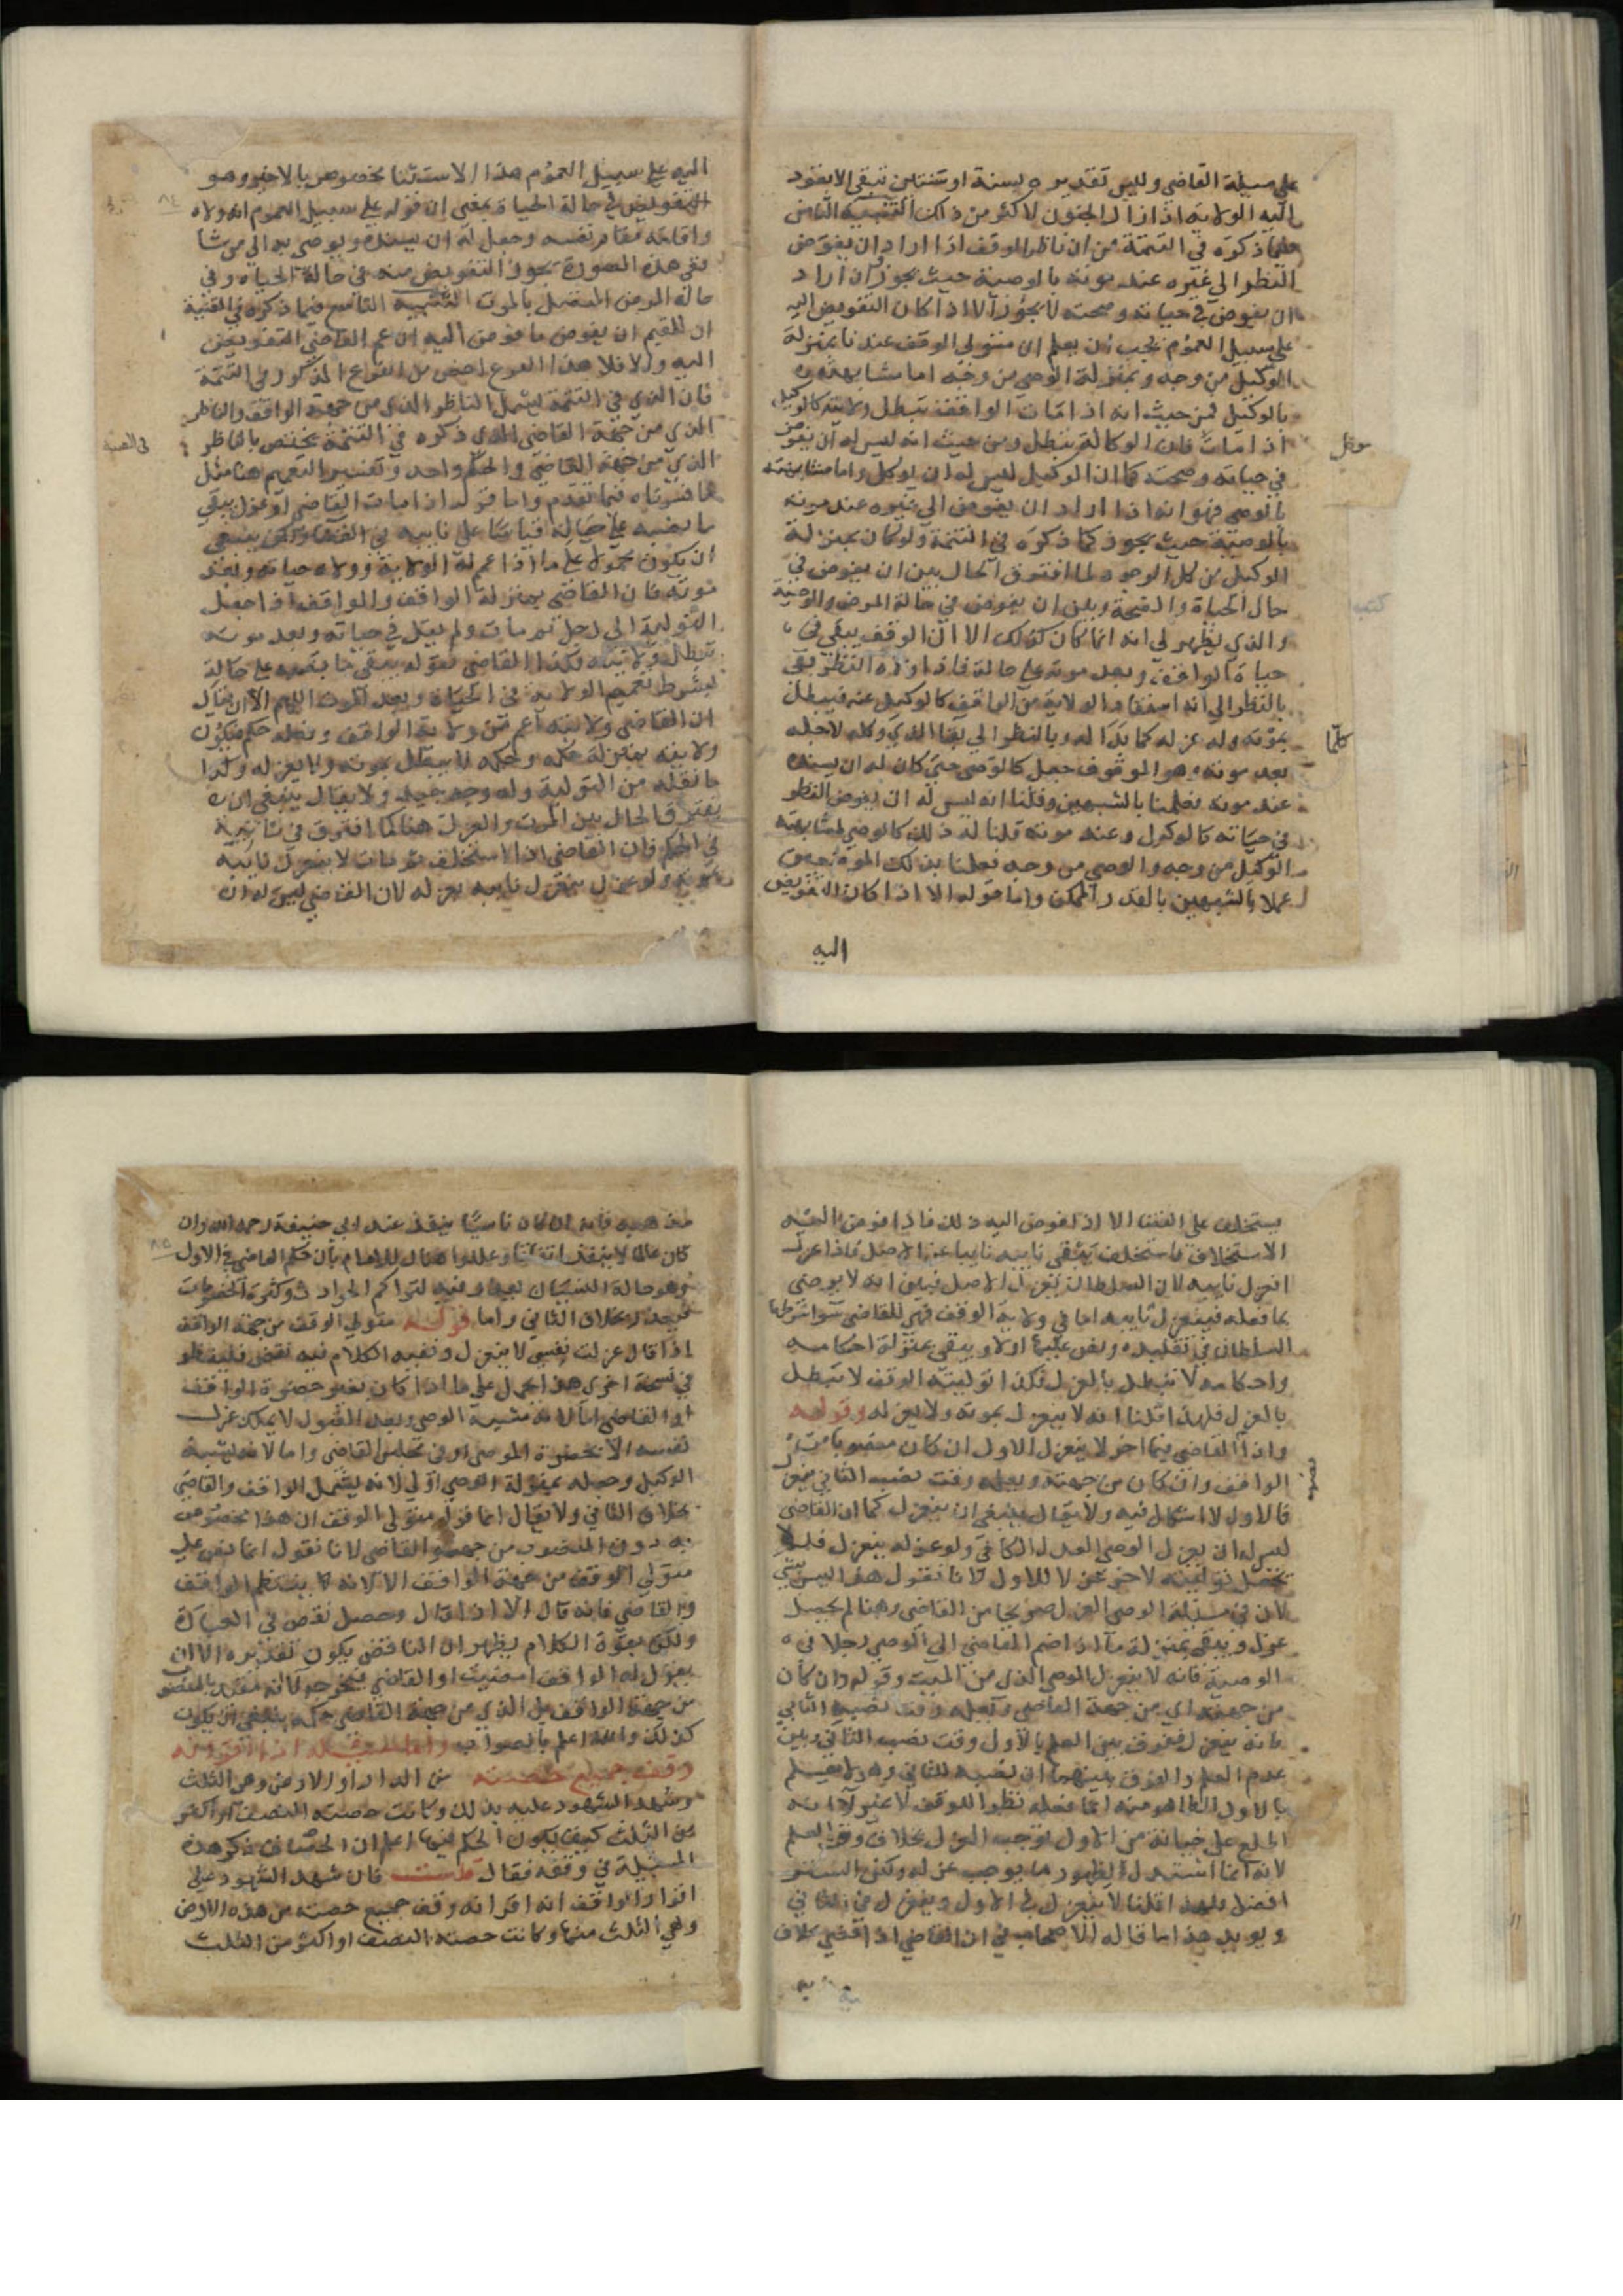 على مسيلة القاضي وليس تقديره بسنة او سنتين تبقى الا بقود
اليه الولاية اذا زال الجنون لاكثر من ذلك التنبيه الثامن
فيما ذكره في التتمة من ان ناظر الوقف اذا اراد ان يفوض
النظر الى غيره عند موته بالوصية حيث يجوز وان اراد
ان يفوض في حياته وصحته لا يجوز الا اذا كان التفويض اليه
على سبيل العموم يجب ان يعلم ان متولي الوقف عندنا بمنزلة
الوكيل من وجه وبمنزلة الوصي من وجه اما مشابهته
بالوكيل فمن حيث انه اذا مات الواقف تبطل ولايته كالوكيل
اذا مات فان الوكالة تبطل ومن حيث انه ليس له ان يفوض
في حياته وصحته كما ان الوكيل ليس له ان يوكل واما مشابهته
بالوصي فهو انه اذا اراد ان يفوض الى غيره عند موته
بالوصية حيث يجوز كما ذكره في التتمة ولو كان بمنزلة
الوكيل من كل الوجوه لما افترق الحال بين ان يفوض في
حال الحياة والصحة وبين ان يفوض في حالة المرض والوصية
والذي يظهر لي انه انما كان كذلك الا ان الوقف يبقى في
حياة الواقف وبعد موته على حالة فاذا
بالنظر الى انه استفاد الولاية من الواقف كالوكيل عنه فيبطل
بموته وله عزله كما بدا له وبالنظر الى بقا الذي وكله لاجله
بعد موته وهو الموقوف جعل كالوصي حتى كان له ان يسنده
عند موته فعلمنا بالشبهين وقلنا انه ليس له ان يفوض النظر
في حياته كالوكيل وعند موته قلنا له ذلك كالوصي لمشابهته
الوكيل من وجه والوصي من وجه فعلمنا بذلك
عملا بالشبهين بالقدر الممكن واما قوله الا اذا كان التفويض
اليه
كلما
اليه على سبيل العموم هذا الاستثنا مخصوص بالاخير وهو
التفويض في حالة الحياة بمعنى ان قوله على سبيل العموم انه ولاه
واقامه مقام نفسه وجعل له ان يسنده ويوصي به الى من شا
ففي هذه الصورة يجوز التفويض منه في حالة الحياة وفي
حالة المرض المتصل بالموت التنبيه التاسع فيما ذكره في القنية
ان للقيم ان يفوض ما فوض اليه ان عم القاضي التفويض
اليه والا فلا هذا الفرع اخص من الفرع المذكور في التتمة
فان الذي في التتمة يشمل الناظر الذي من جهة الواقف والناظر
الذي من جهة القاضي الذي ذكره في التتمة يختص بالناظر
الذي من جهة القاضي والحكم واحد وتفسير التعميم هنا مثل
ما فسرناه فيما تقدم واما قوله اذا مات القاضي او عزل يبقى
ما نصبه على حاله قياسا على نايبه في القضا ولكن ينبغي
ان يكون محمولا على ما اذا عم له الولاية وولاه حياته وبعد
موته فان القاضي بمنزلة الواقف والواقف اذا جعل
التولية الى رجل ثم مات ولم يقل في حياته وبعد موته
تبطل ولايته وكذا القاضي فقوله يبقى ما نصبه على حاله
بشرط تعميم الولاية في الحياة وبعد الموت اللهم الا ان يقال
ان القاضي ولايته اعم من ولاية الواقف وفعله حكم فيكون
ولايته بمنزلة حكمه وحكمه لا يبطل بموته ولا بعزله وكذا
ما نقله من التولية وله وجه جيد ولا يقال ينبغي ان
يفترق الحال بين الموت والعزل هنا كما افترق في نايبه
في الحكم فان القاضي اذا استخلف ثم مات لا ينعزل نايبه
بموته ولو عزل ينعزل نايبه بعزله لان القاضي ليس له ان
٨٤
يستخلف على القضا الا اذا فوض اليه ذلك فاذا فوض اليه
الاستخلاف فاستخلف يبقى نايبه نايبا عن الاصل فاذا عزل
انعزل نايبه لان السلطان بعزل الاصل تبين انه لا يرضى
بما فعله فينعزل نايبه اما في ولاية الوقف فهي للقاضي سوا شرطها
السلطان في تقليده ونص عليها اولا ويبقى بمنزلة احكامه
واحكامه لا تبطل بالعزل فكذا توليته الوقف لا تبطل
بالعزل فلهذا قلنا انه لا ينعزل بموته ولا بعزله وقوله
واذا القاضي قيما اخر لا ينعزل الاول ان كان منصوبا من
الواقف وان كان من جهته وبعلم وقت نصب الثاني ينعزل
فالاول لا اشكال فيه ولا يقال ينبغي ان ينعزل كما ان القاضي
ليس له ان يعزل الوصي العدل الكافي ولو عزله ينعزل فلم لا
تجعل توليته لاخر عزلا للاول لانا نقول هذا ليس بشي
لان في مسيلة الوصي العزل صريحا من القاضي وهنا لم يحصل
عزل ويبقى بمنزلة ما اذا ضم القاضي الى الوصي رجلا في
الوصية فانه لا ينعزل الوصي الذي من الميت وقوله وان كان
من جهته اي من جهة القاضي وبعلم وقت نصب الثاني
فانه ينعزل ففرق بين العلم بالاول وقت نصب الثاني وبين
عدم العلم والفرق بينهما ان نصبه للثاني وهو لا يعلم
بالاول الظاهر منه انما فعله نظرا للوقف لا غير لا انه
اطلع على خيانة من الاول توجب العزل بخلاف وقت العلم
لانه انما استبدل لظهور ما يوجب عزله ولكن الستر
افضل فلهذا قلنا لا ينعزل في الاول وينعزل في الثاني
ويويد هذا ما قاله الاصحاب في ان القاضي اذا قضى بخلاف
مذهبه فانه ان كان ناسيا ينفذ عند ابي حنيفة رحمه الله وان
كان عالما لا ينفذ اتفاقا وعللوا هناك للامام بان حكم القاضي في الاول
وهو حالة النسيان لتراكم الحوادث وكثرة الخصومات
بخلاف الثاني واما قوله متولي الوقف من جهة الواقف
اذا قال عزلت نفسي لا ينعزل ونفيه الكلام فيه نقص فلينظر
في نسخة اخرى هذا احمل على ما اذا كان بغير حضرة الواقف
او القاضي اما لانه مشبه الوصي وبعد القبول لا يمكن عزل
نفسه الا بحضرة الموصي او في مجلس القاضي واما لانه يشبه
الوكيل وجعله بمنزلة الوصي اولى لانه يشمل الواقف والقاضي
بخلاف الثاني ولا يقال انما قوله متولي الوقف ان هذا مخصوص
به دون المنصوب من جهة القاضي لانا نقول انما نص على
متولي الوقف من جهة الواقف
والقاضي فانه قال الا اذا قال وحصل نقص في العبارة
ولكن بقوة الكلام يظهر ان الناقص يكون تقديره الا ان
يقول له الواقف امضيت او القاضي يخرجه
من جهة الواقف على الذي من جهة القاضي حكمه ينبغي ان يكون
كذلك والله اعلم بالصواب واما المسيلة اذا اقر انه
وقف جميع حصته من الدار او الارض وهي الثلث
وشهد الشهود عليه بذلك وكانت حصته النصف او اكثر
من الثلث كيف يكون الحكم فيها اعلم ان الخصاف ذكر هذه
المسيلة في وقفه فقال قلت فان شهد الشهود على
اقرار الواقف انه اقر انه وقف جميع حصته من هذه الارض
وهي الثلث منها وكانت حصته النصف او اكثر من الثلث
٨٥